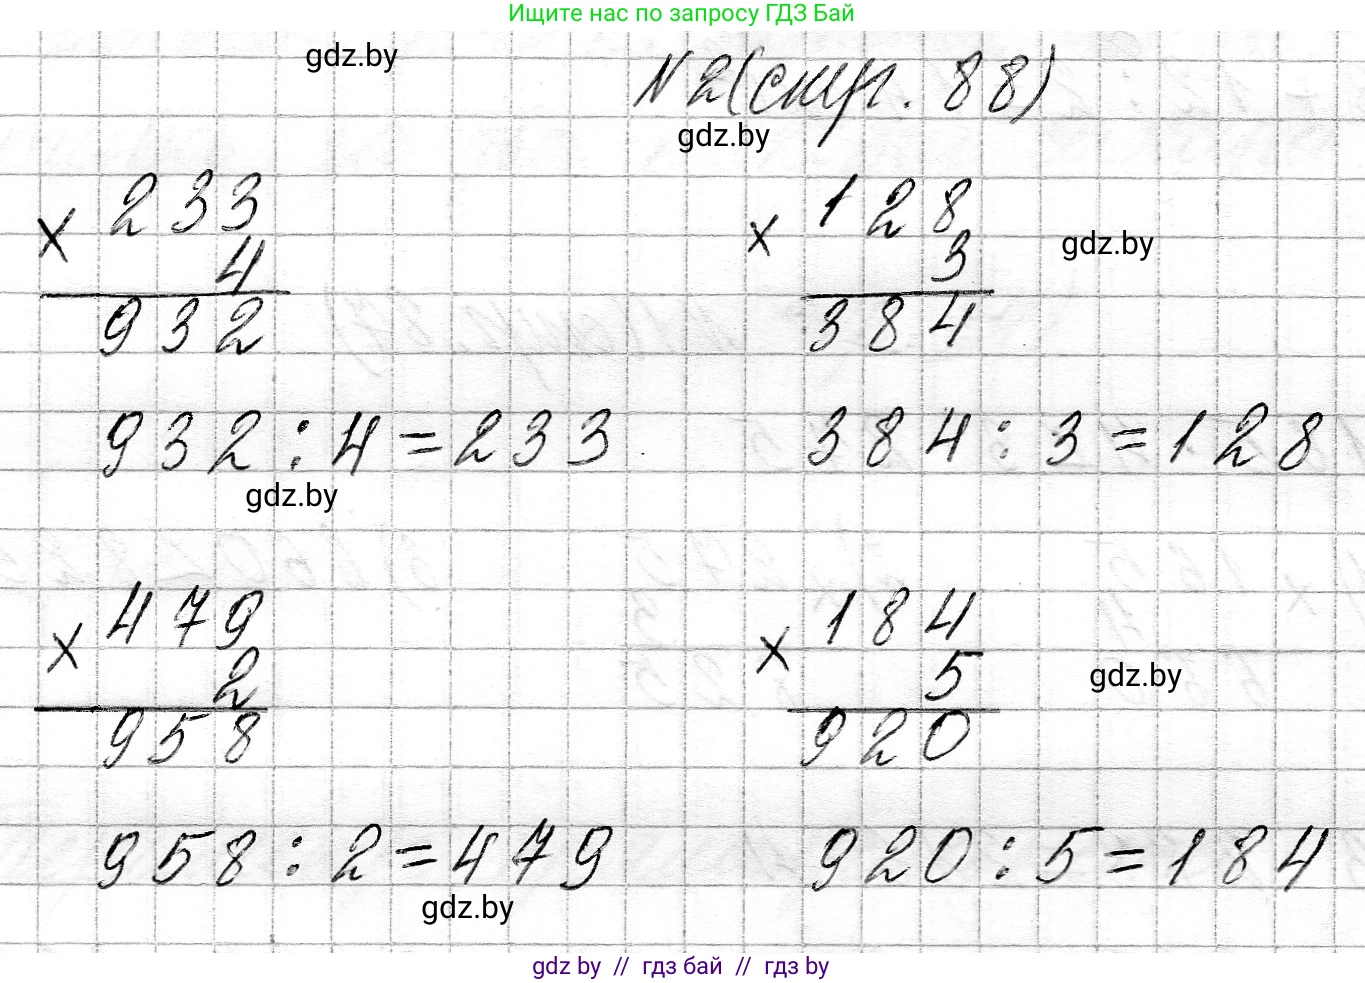 Ищите нас по запросу ГДЗ Бай
gdz.by
N2(
. 88)
gdz.by
233
× 4
932
128
× 3
384
gdz.by
932:4=233
384:3=128
gdz.by
479
× 2
958
184
× 5
920
gdz.by
958:2=479
920:5=184
gdz.by
gdz by // гдз бай // gdz by